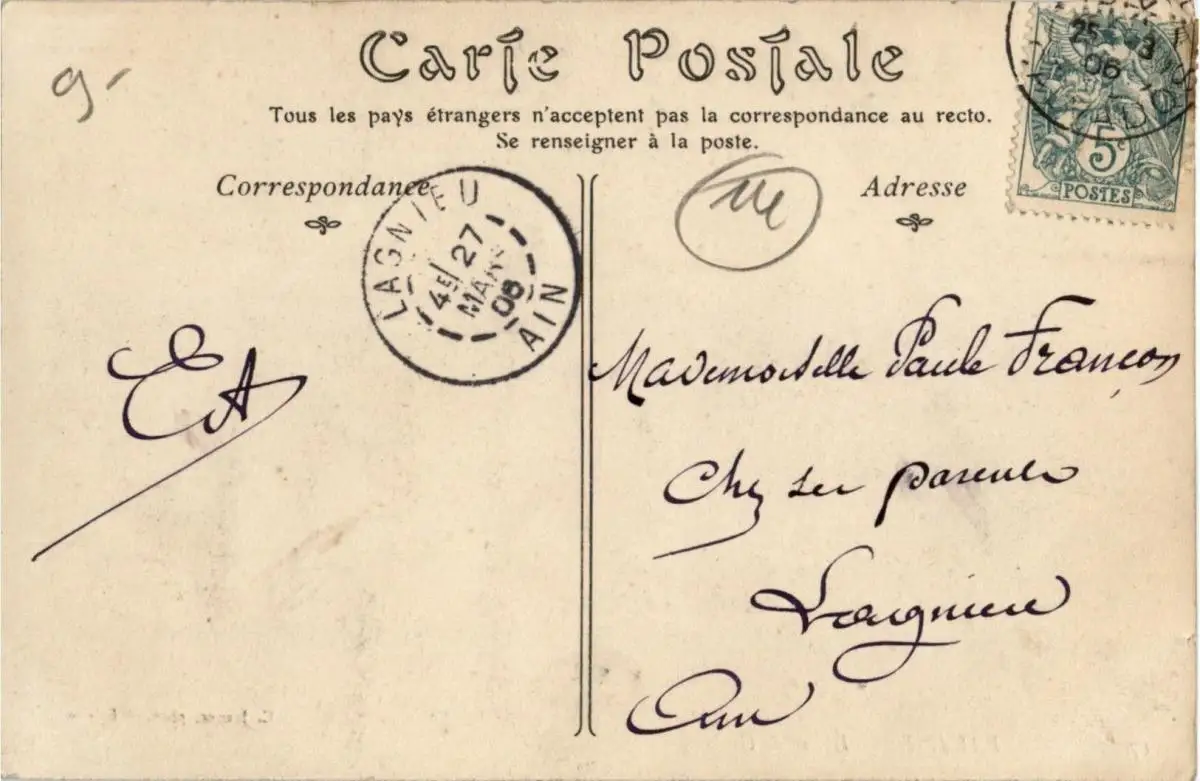 Carte Postale
9-
Tous les pays étrangers n'acceptent pas la correspondance au recto.
Se renseigner à la poste.
Correspondance
Adresse
LAGNIEU
4E 27
MARS
06
AIN
25 -3
06
5c
POSTES
EA
Mademoiselle Paule Françon
Chez ses parents
Lagnieu
Ain